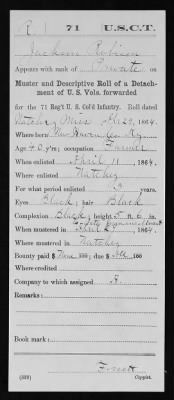 R. 71 U.S.C.T.
Jackson Robison
Appears with rank of Private on
Muster and Descriptive Roll of a Detach-
ment of U. S. Vols. forwarded
for the 71 Reg't U. S. Col'd Infantry. Roll dated
Natchez, Miss 29, 1864.
Where born Ky.
Age 40 y'rs; occupation Farmer
When enlisted April 11, 1864.
Where enlisted Natchez
For what period enlisted 3 years.
Eyes Black; hair Black
Complexion Black; height 5 ft. 6 in.
When mustered in April 27, 1864.
Where mustered in Natchez
Bounty paid $ None 100; due $ 100
Where credited
Company to which assigned
Remarks:
Book mark:
(339) Copyist.